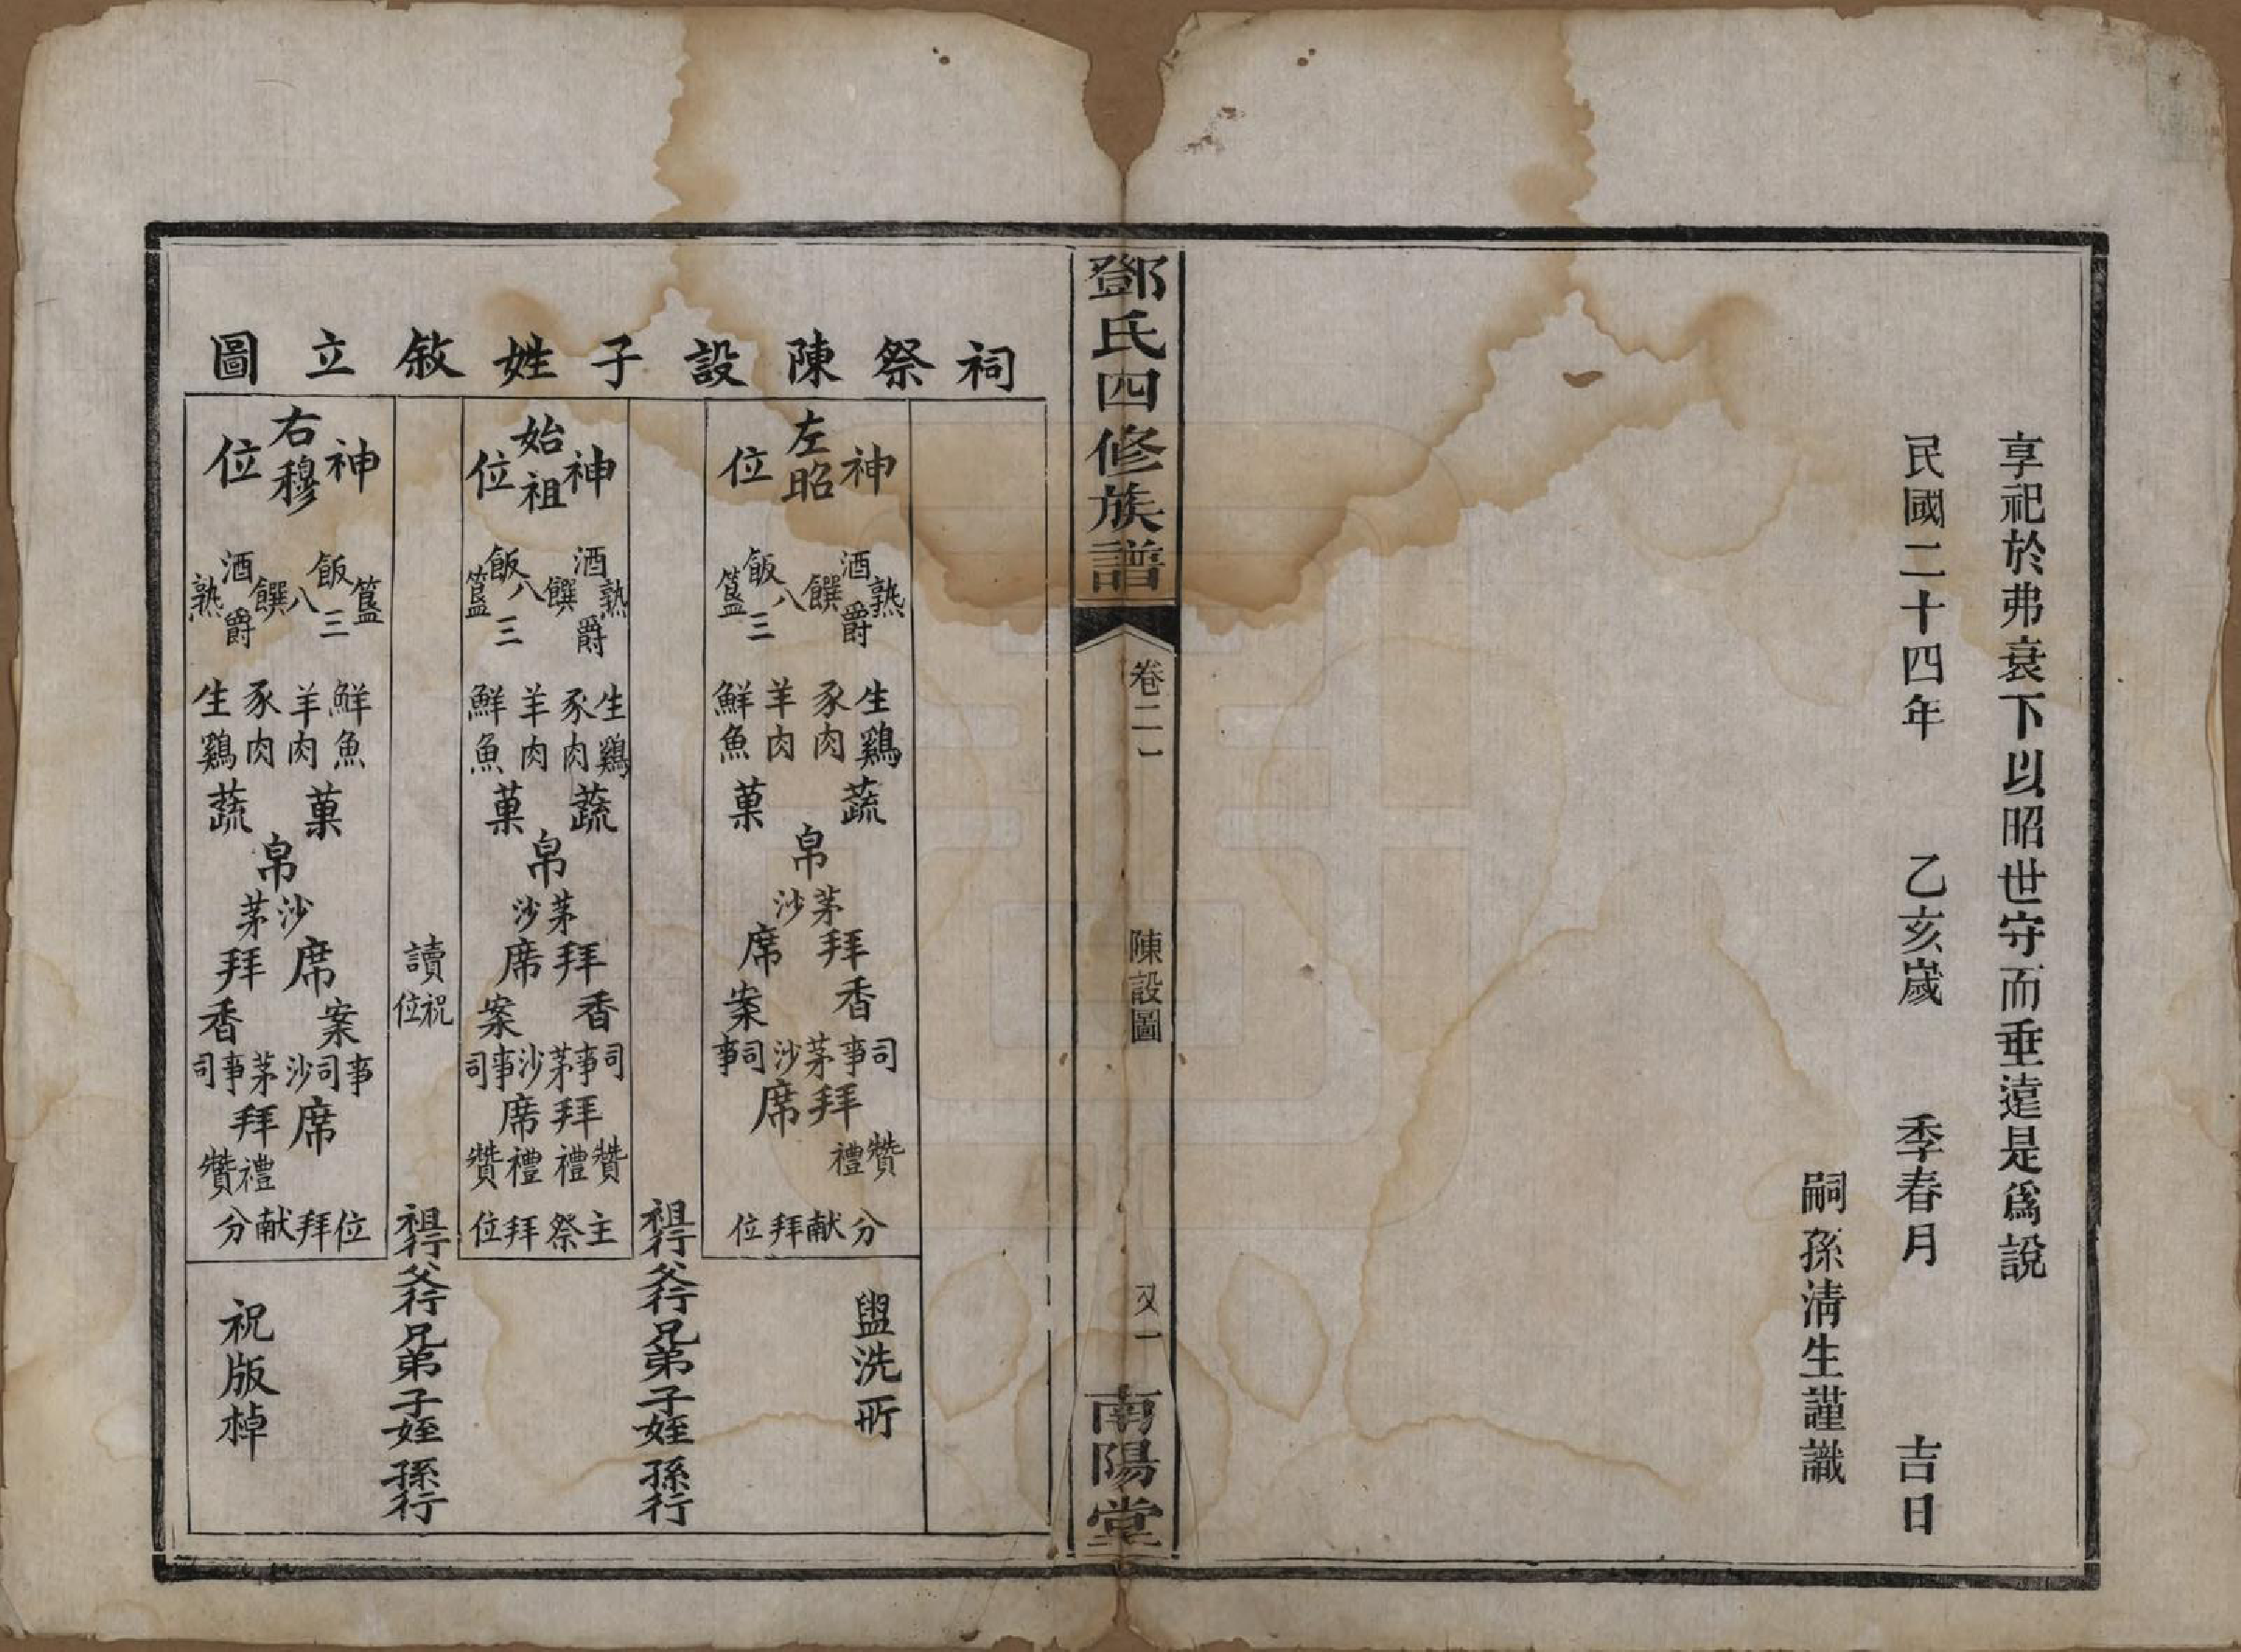 享祀於弗衰下以昭世守而垂遠是爲說
民國二十四年 乙亥歲 季春月 吉日
嗣孫淸生謹識
鄧氏四修族譜
卷二一
陳設圖
又一
南陽堂
祠祭陳設子姓敘立圖
左昭神位
熟酒爵饌八飯三簋
生鷄 豕肉 羊肉 鮮魚
蔬 菓
帛
茅沙
拜席
香案
司事 茅沙 司事
拜席
贊禮
分献拜位
盥洗所
祖行 父行 兄弟 子姪 孫行
始祖神位
熟酒爵饌八飯三簋
生鷄 豕肉 羊肉 鮮魚
蔬 菓
帛
茅沙
拜席
香案
司事 茅沙 事司
拜席
贊禮 禮贊
主祭拜位
讀祝位
祖行 父行 兄弟 子姪 孫行
右穆神位
簋飯三八饌酒爵熟
鮮魚 羊肉 豕肉 生鷄
菓 蔬
帛
沙茅
席拜
案香
事司 沙茅 事司
席拜
禮贊
分献拜位
祝版棹